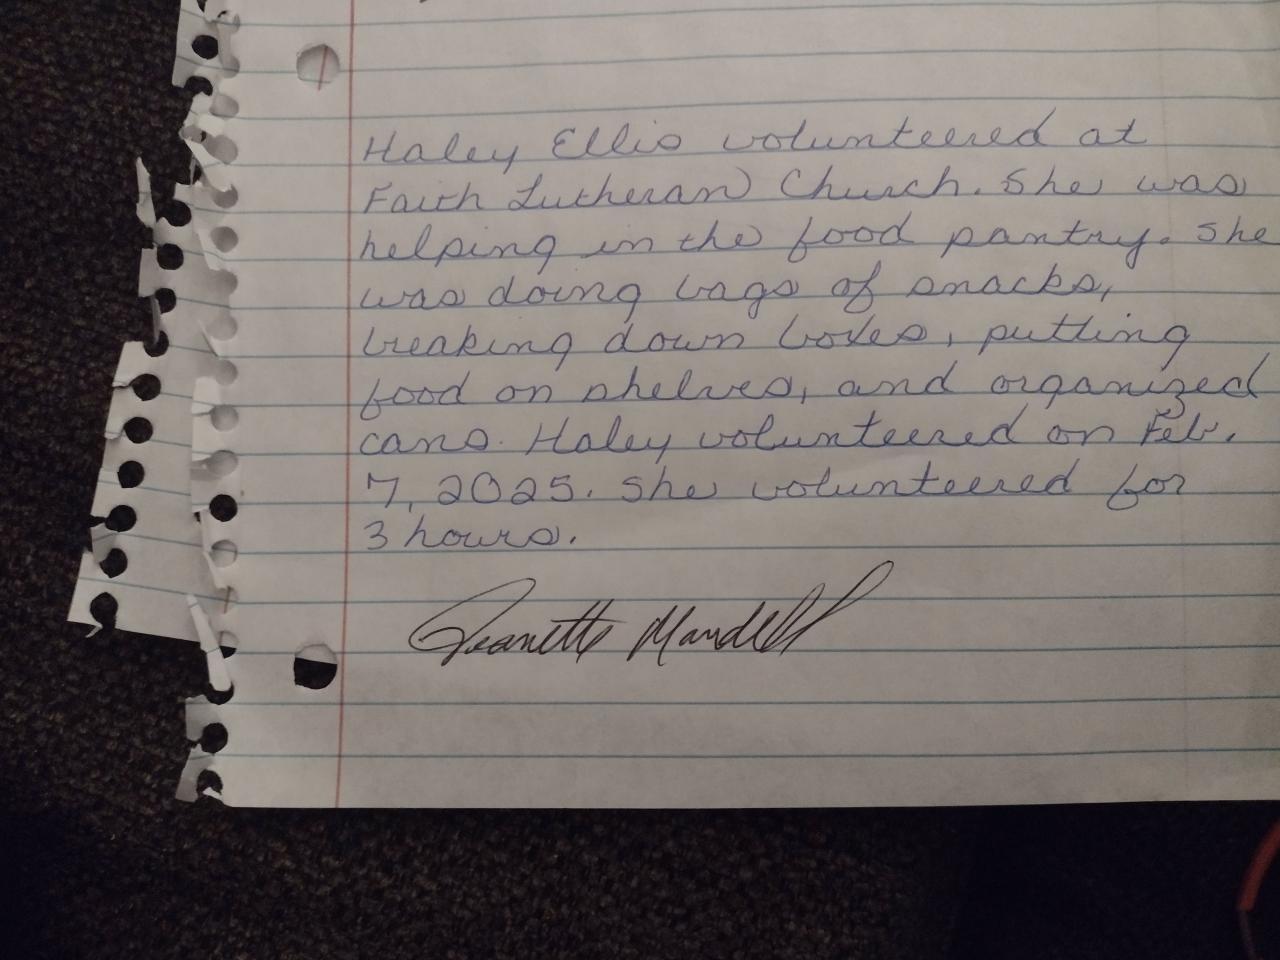 Haley Ellis volunteered at
Faith Lutheran Church. She was
helping in the food pantry. She
was doing bags of snacks,
breaking down boxes, putting
food on shelves, and organized
cans. Haley volunteered on Feb.
7, 2025. She volunteered for
3 hours.
Jeanette Mandell